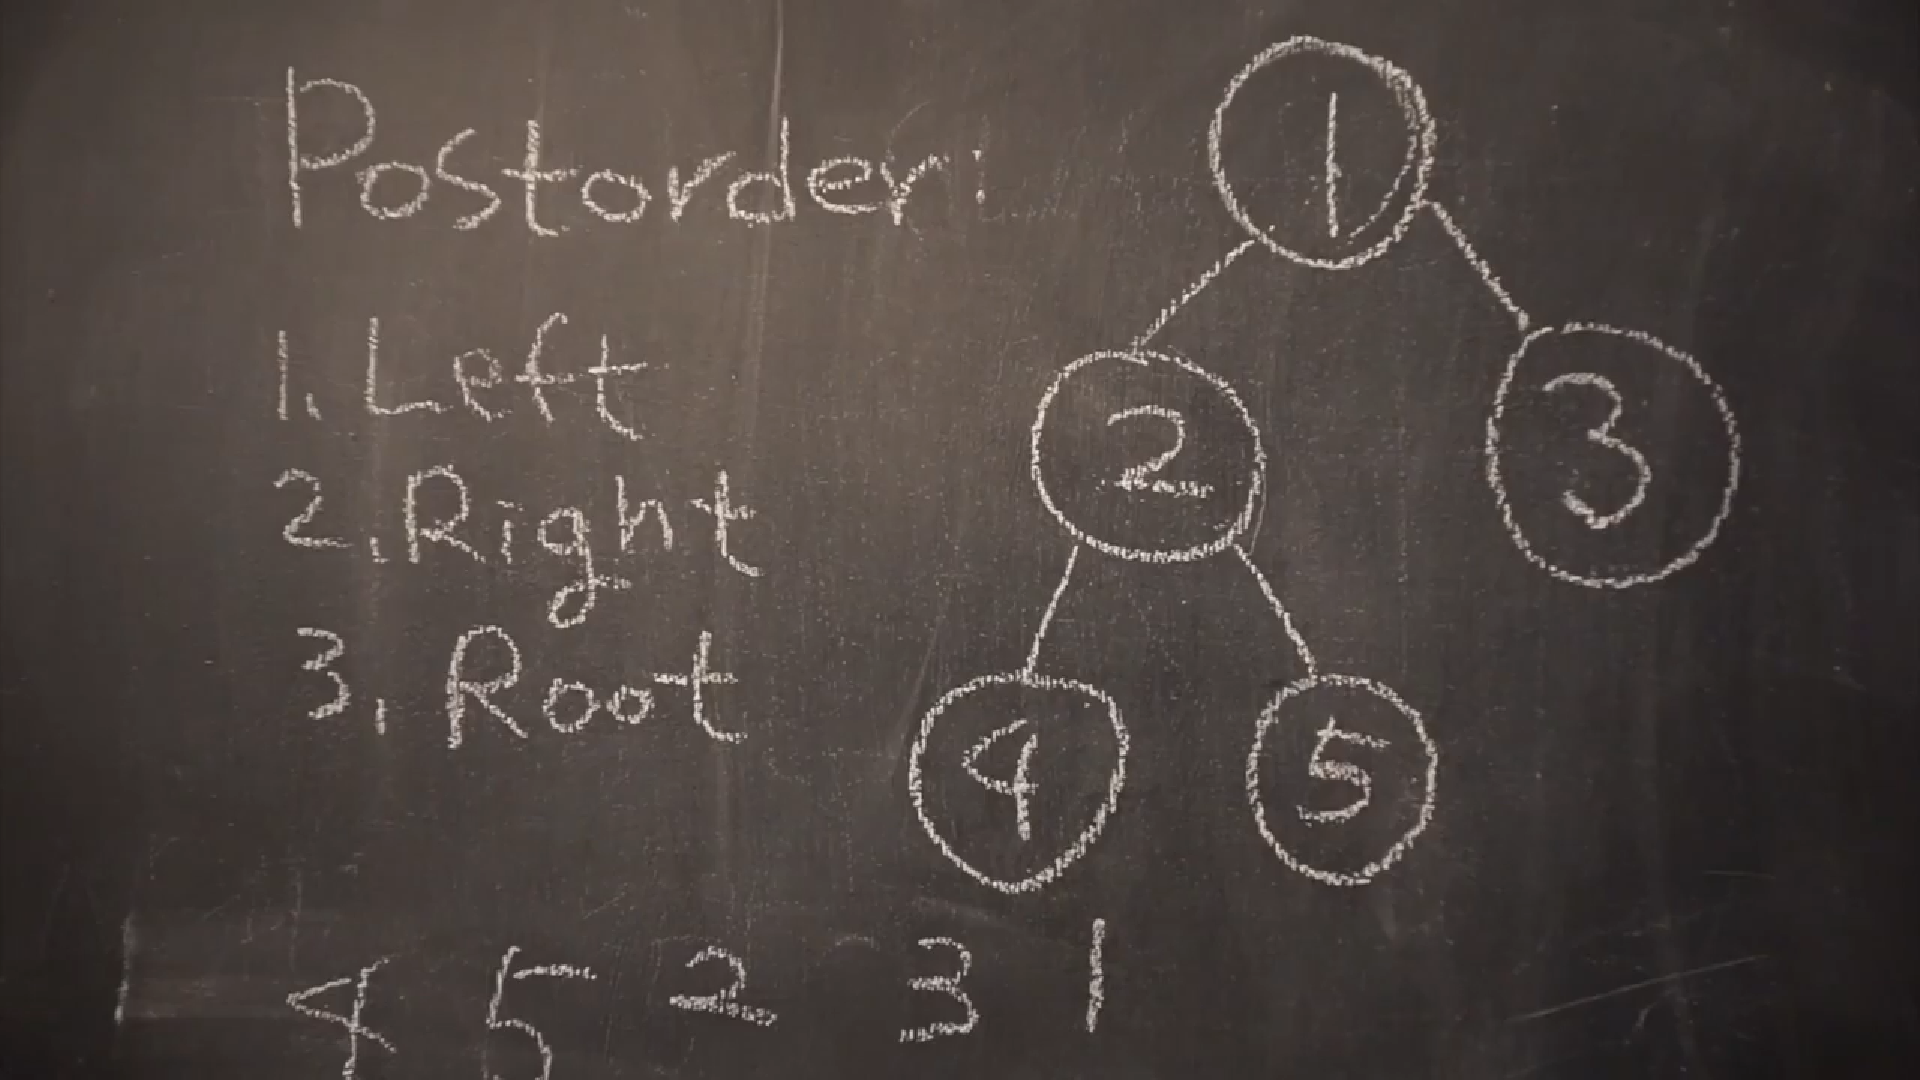 Postorder:
1. Left
2. Right
3. Root
1
2
3
4
5
4 5 2 3 1